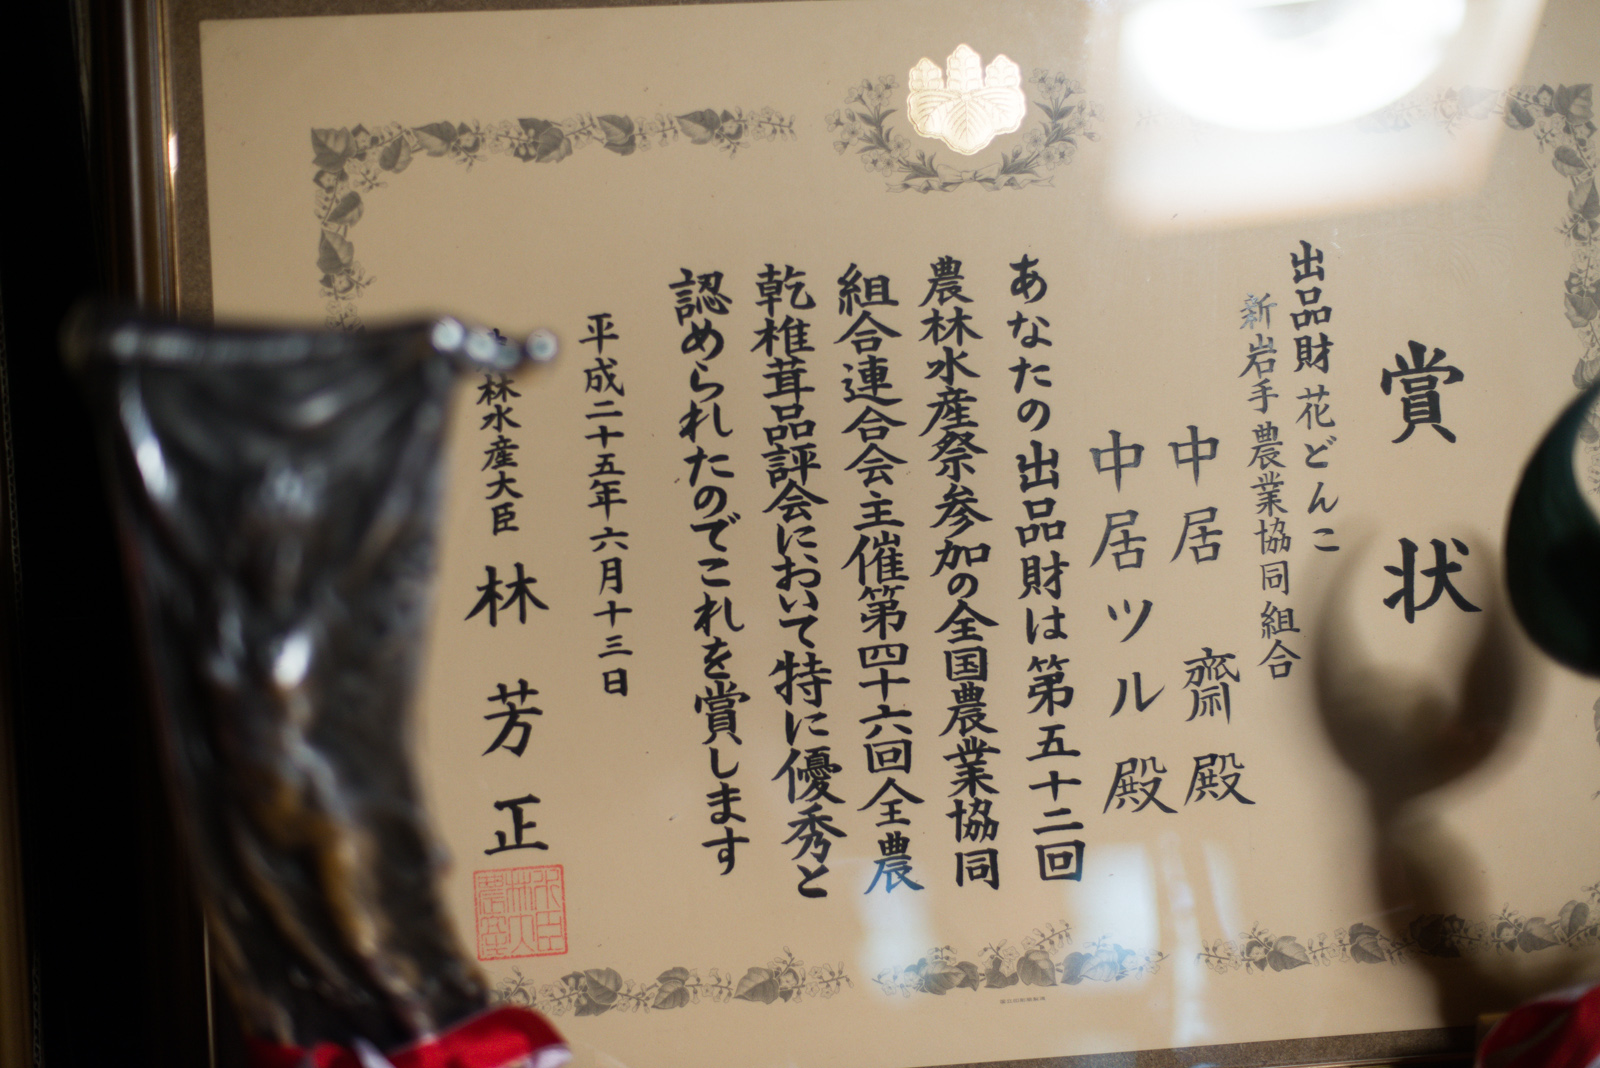 賞状
出品財 花どんこ
新岩手農業協同組合
中居 齋 殿
中居ツル 殿
あなたの出品財は第五十二回
農林水産祭参加の全国農業協同
組合連合会主催第四十六回全農
乾椎茸品評会において特に優秀と
認められたのでこれを賞します
平成二十五年六月十三日
林水産大臣 林 芳正